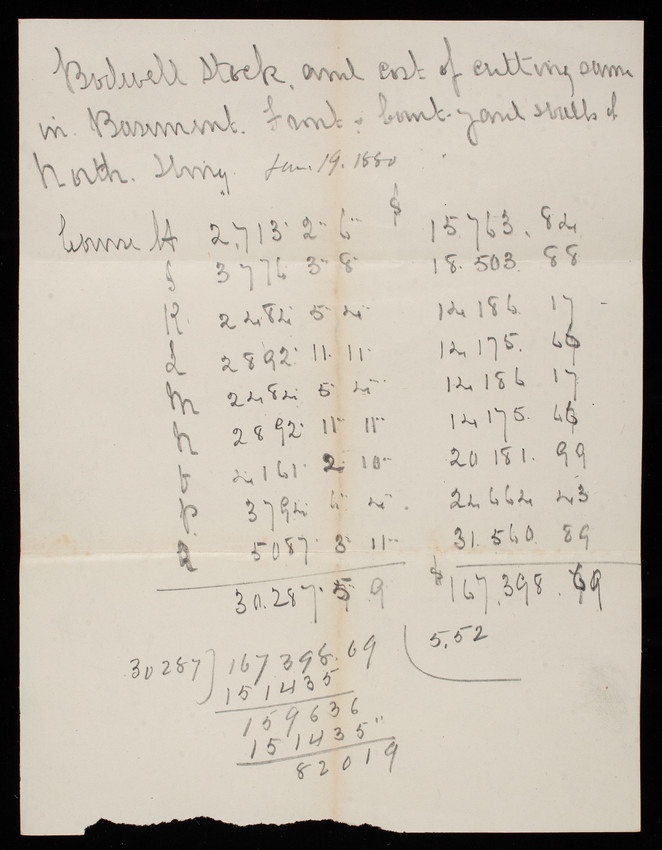 Bodwell Stock, and cost of cutting same
in Basement. Front & Court-yard walls of
North. Wing. Jan. 19. 1880
Course H 2,713" 2" 6" $ 15,763.84
J 3776 3" 8" 18.503.88
K 2484 5 4" 14 186. 17
L 2892" 11" 11" 14 175. 66
M 2484 5" 4" 14 186 17
N 2892" 11" 11" 14 175. 66
O 4161" 2" 10" 20 181. 99
P 3794 6" 4" 24 664 43
Q 5087" 3" 11" 31.560. 89
30.287" 5 9 $167,398.69
30287)167398.69(5.52
151435
159636
151435"
82019